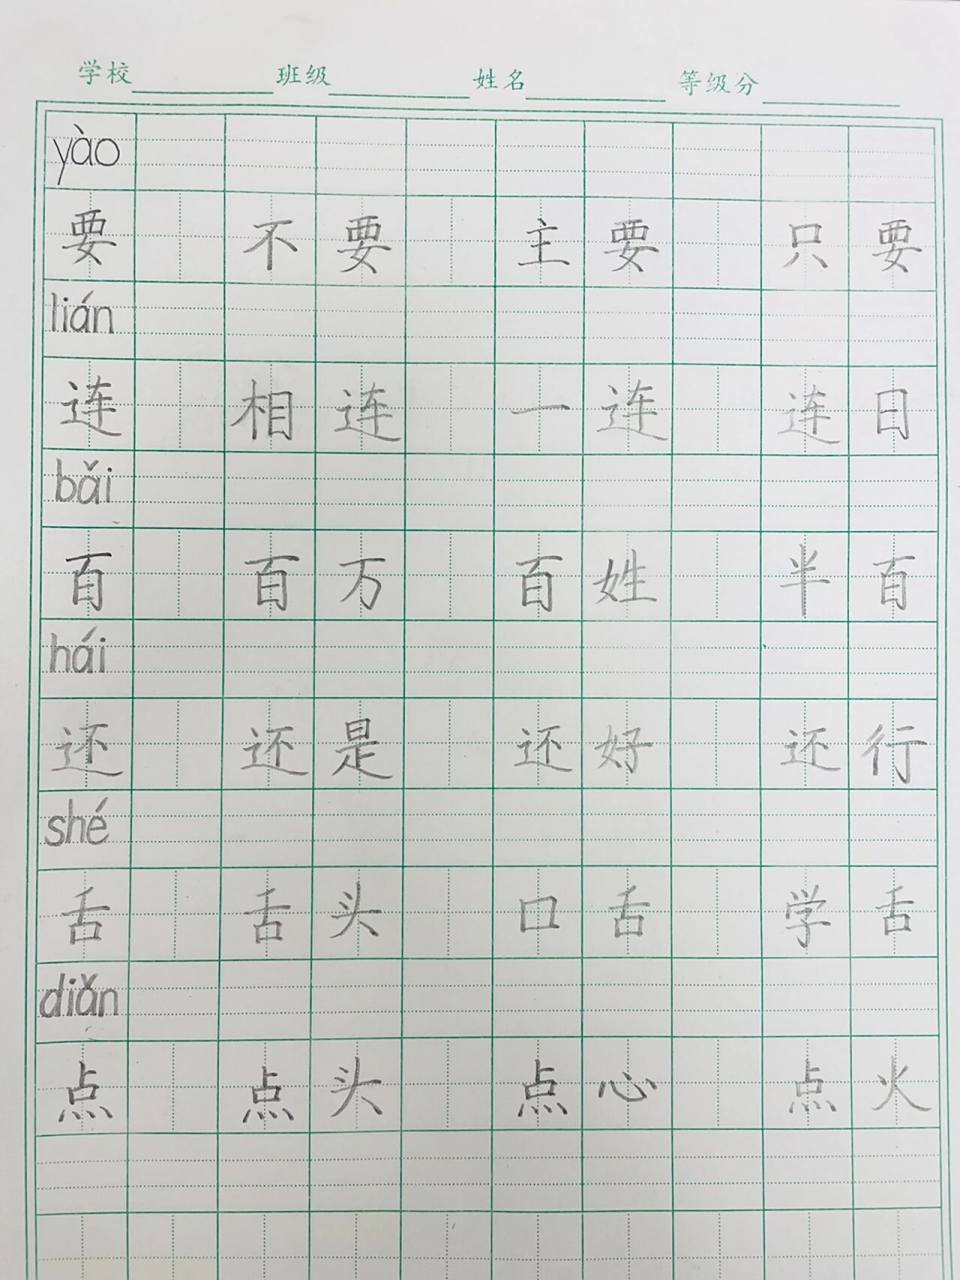 学校 班级 姓名 等级分
yào
要 不要 主要 只要
lián
连 相连 一连 连日
bǎi
百 百万 百姓 半百
hái
还 还是 还好 还行
shé
舌 舌头 口舌 学舌
diǎn
点 点头 点心 点火